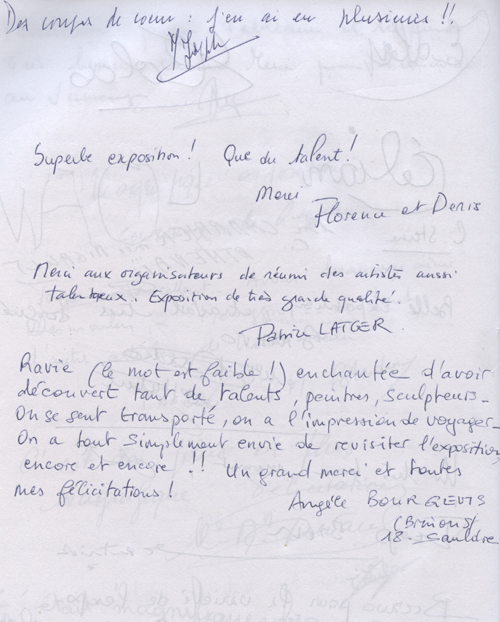 Des coups de coeur : j'en ai eu plusieurs !!
Superbe exposition ! Que du talent !
Merci
Florence et Denis
Merci aux organisateurs de réunir des artistes aussi
talentueux. Exposition de très grande qualité.
LATGER
Ravie (le mot est faible !) enchantée d'avoir
découvert tant de talents, peintres, sculpteurs_
On se sent transporté, on a l'impression de voyager_
On a tout simplement envie de revisiter l'exposition
encore et encore !! Un grand merci et toutes
mes félicitations !
Angèle
18